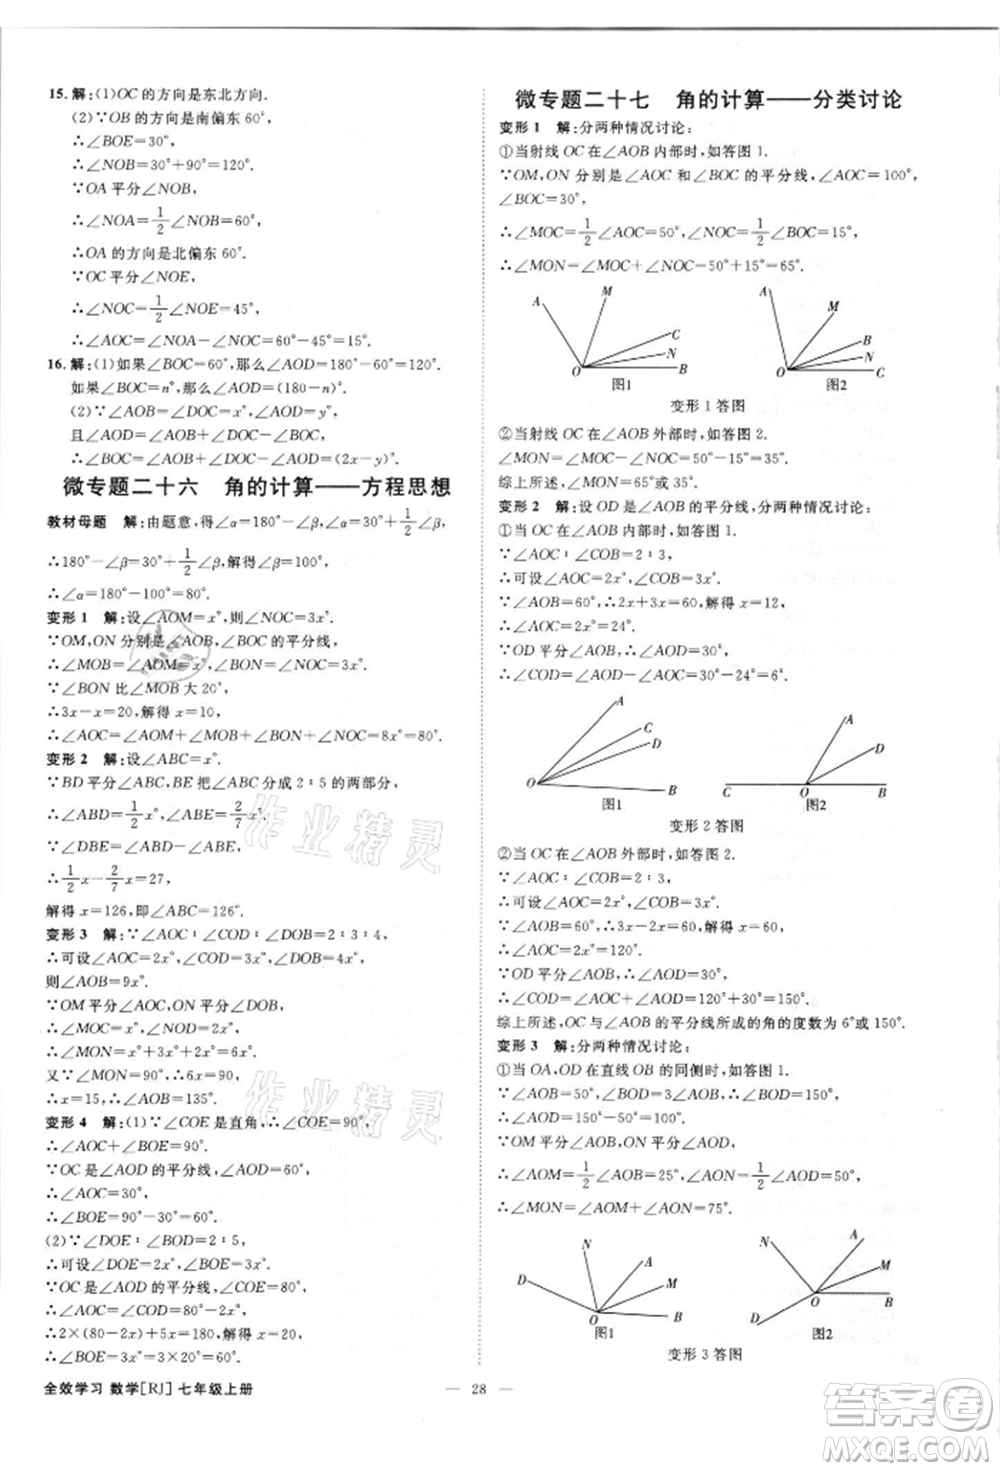 15. 解:(1)OC 的方向是东北方向.
(2)∵OB 的方向是南偏东 60°,
∴∠BOE=30°,
∴∠NOB=30°+90°=120°.
∵OA 平分∠NOB,
∴∠NOA=1/2∠NOB=60°,
∴OA 的方向是北偏东 60°.
∵OC 平分∠NOE,
∴∠NOC=1/2∠NOE=45°,
∴∠AOC=∠NOA-∠NOC=60°-45°=15°.
16. 解:(1)如果∠BOC=60°,那么∠AOD=180°-60°=120°.
如果∠BOC=n°,那么∠AOD=(180-n)°.
(2)∵∠AOB=∠DOC=x°,∠AOD=y°,
且∠AOD=∠AOB+∠DOC-∠BOC,
∴∠BOC=∠AOB+∠DOC-∠AOD=(2x-y)°.
微专题二十六 角的计算——方程思想
教材母题 解:由题意,得∠α=180°-∠β,∠α=30°+1/2∠β,
∴180°-∠β=30°+1/2∠β,解得∠β=100°,
∴∠α=180°-100°=80°.
变形 1 解:设∠AOM=x°,则∠NOC=3x°.
∵OM,ON 分别是∠AOB,∠BOC 的平分线,
∴∠MOB=∠AOM=x°,∠BON=∠NOC=3x°.
∵∠BON 比∠MOB 大 20°,
∴3x-x=20,解得 x=10,
∴∠AOC=∠AOM+∠MOB+∠BON+∠NOC=8x°=80°.
变形 2 解:设∠ABC=x°.
∵BD 平分∠ABC,BE 把∠ABC 分成 2∶5 的两部分,
∴∠ABD=1/2x°,∠ABE=2/7x°.
∵∠DBE=∠ABD-∠ABE=27°,
∴1/2x-2/7x=27,
解得 x=126,即∠ABC=126°.
变形 3 解:∵∠AOC∶∠COD∶∠DOB=2∶3∶4,
∴可设∠AOC=2x°,∠COD=3x°,∠DOB=4x°,
则∠AOB=9x°.
∵OM 平分∠AOC,ON 平分∠DOB,
∴∠MOC=x°,∠NOD=2x°,
∴∠MON=x°+3x°+2x°=6x°.
又∵∠MON=90°,∴6x=90,
∴x=15,∴∠AOB=135°.
变形 4 解:(1)∵∠COE 是直角,∴∠COE=90°,
∴∠AOC+∠BOE=90°.
∵OC 是∠AOD 的平分线,∠AOD=60°,
∴∠AOC=30°,
∴∠BOE=90°-30°=60°.
(2)∵∠DOE∶∠BOD=2∶5,
∴可设∠DOE=2x°,∠BOD=5x°.
∵OC 是∠AOD 的平分线,∠COE=80°,
∴∠AOC=∠COD=80°-2x°,
∴2×(80-2x)+5x=180,解得 x=20,
∴∠BOE=3x°=3×20°=60°.
全效学习 数学[RJ] 七年级上册
微专题二十七 角的计算——分类讨论
变形 1 解:分两种情况讨论:
①当射线 OC 在∠AOB 内部时,如答图 1.
∵OM,ON 分别是∠AOC 和∠BOC 的平分线,∠AOC=100°,
∠BOC=30°,
∴∠MOC=1/2∠AOC=50°,∠NOC=1/2∠BOC=15°,
∴∠MON=∠MOC+∠NOC=50°+15°=65°.
A M C N B O
图1
A M B N C O
图2
变形 1 答图
②当射线 OC 在∠AOB 外部时,如答图 2.
∠MON=∠MOC-∠NOC=50°-15°=35°.
综上所述,∠MON=65°或 35°.
变形 2 解:设 OD 是∠AOB 的平分线,分两种情况讨论:
①当 OC 在∠AOB 内部时,如答图 1.
∵∠AOC∶∠COB=2∶3,
∴可设∠AOC=2x°,∠COB=3x°.
∵∠AOB=60°,∴2x+3x=60,解得 x=12,
∴∠AOC=2x°=24°.
∵OD 平分∠AOB,∴∠AOD=30°,
∴∠COD=∠AOD-∠AOC=30°-24°=6°.
A C D B O
图1
A D C O B
图2
变形 2 答图
②当 OC 在∠AOB 外部时,如答图 2.
∵∠AOC∶∠COB=2∶3,
∴可设∠AOC=2x°,∠COB=3x°.
∵∠AOB=60°,∴3x-2x=60,解得 x=60,
∴∠AOC=2x°=120°.
∵OD 平分∠AOB,∴∠AOD=30°,
∴∠COD=∠AOC+∠AOD=120°+30°=150°.
综上所述,OC 与∠AOB 的平分线所成的角的度数为 6°或 150°.
变形 3 解:分两种情况讨论:
①当 OA,OD 在直线 OB 的同侧时,如答图 1.
∵∠AOB=50°,∠BOD=3∠AOB=150°,
∴∠AOD=150°-50°=100°.
∵OM 平分∠AOB,ON 平分∠AOD,
∴∠AOM=1/2∠AOB=25°,∠AON=1/2∠AOD=50°,
∴∠MON=∠AOM+∠AON=75°.
N A D M O B
图1
N A M O B D
图2
变形 3 答图
— 28 —
作业精灵
作业精灵
答案圈
MXQE.COM